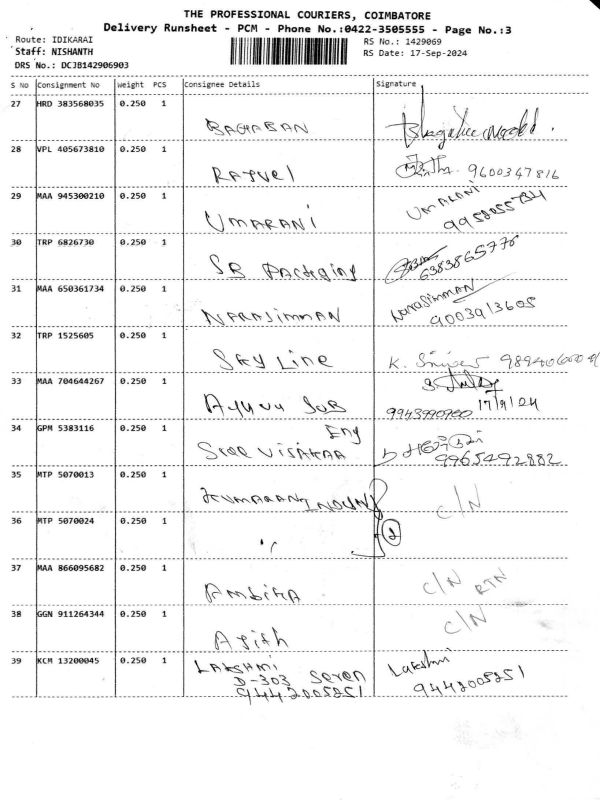 THE PROFESSIONAL COURIERS, COIMBATORE
Delivery Runsheet - PCM - Phone No.:0422-3505555 - Page No.:3
Route: IDIKARAI
Staff: NISHANTH
DRS No.: DCJB142906903
RS No.: 1429069
RS Date: 17-Sep-2024
S No Consignment No Weight PCS Consignee Details Signature
27 HRD 383568035 0.250 1 BAGHABAN
28 VPL 405673810 0.250 1 RAJVEL 9600347816
29 MAA 945300210 0.250 1 UMARANI UMARANI
30 TRP 6826730 0.250 1 SB Packaging 6383865778
31 MAA 650361734 0.250 1 NARASIMMAN Narasimman
9003913605
32 TRP 1525605 0.250 1 SKY Line K.
33 MAA 704644267 0.250 1
17/9/24
34 GPM 5383116 0.250 1 Sree VISAKAA
9965492882
35 MTP 5070013 0.250 1 KUMARAN INDUS C/N
36 MTP 5070024 0.250 1 '' 2
37 MAA 866095682 0.250 1 Ambika C/N RTN
38 GGN 911264344 0.250 1 Ajith C/N
39 KCM 13200045 0.250 1 LAKSHMI Lakshmi
D-303 Seren
9442005251 9442005251